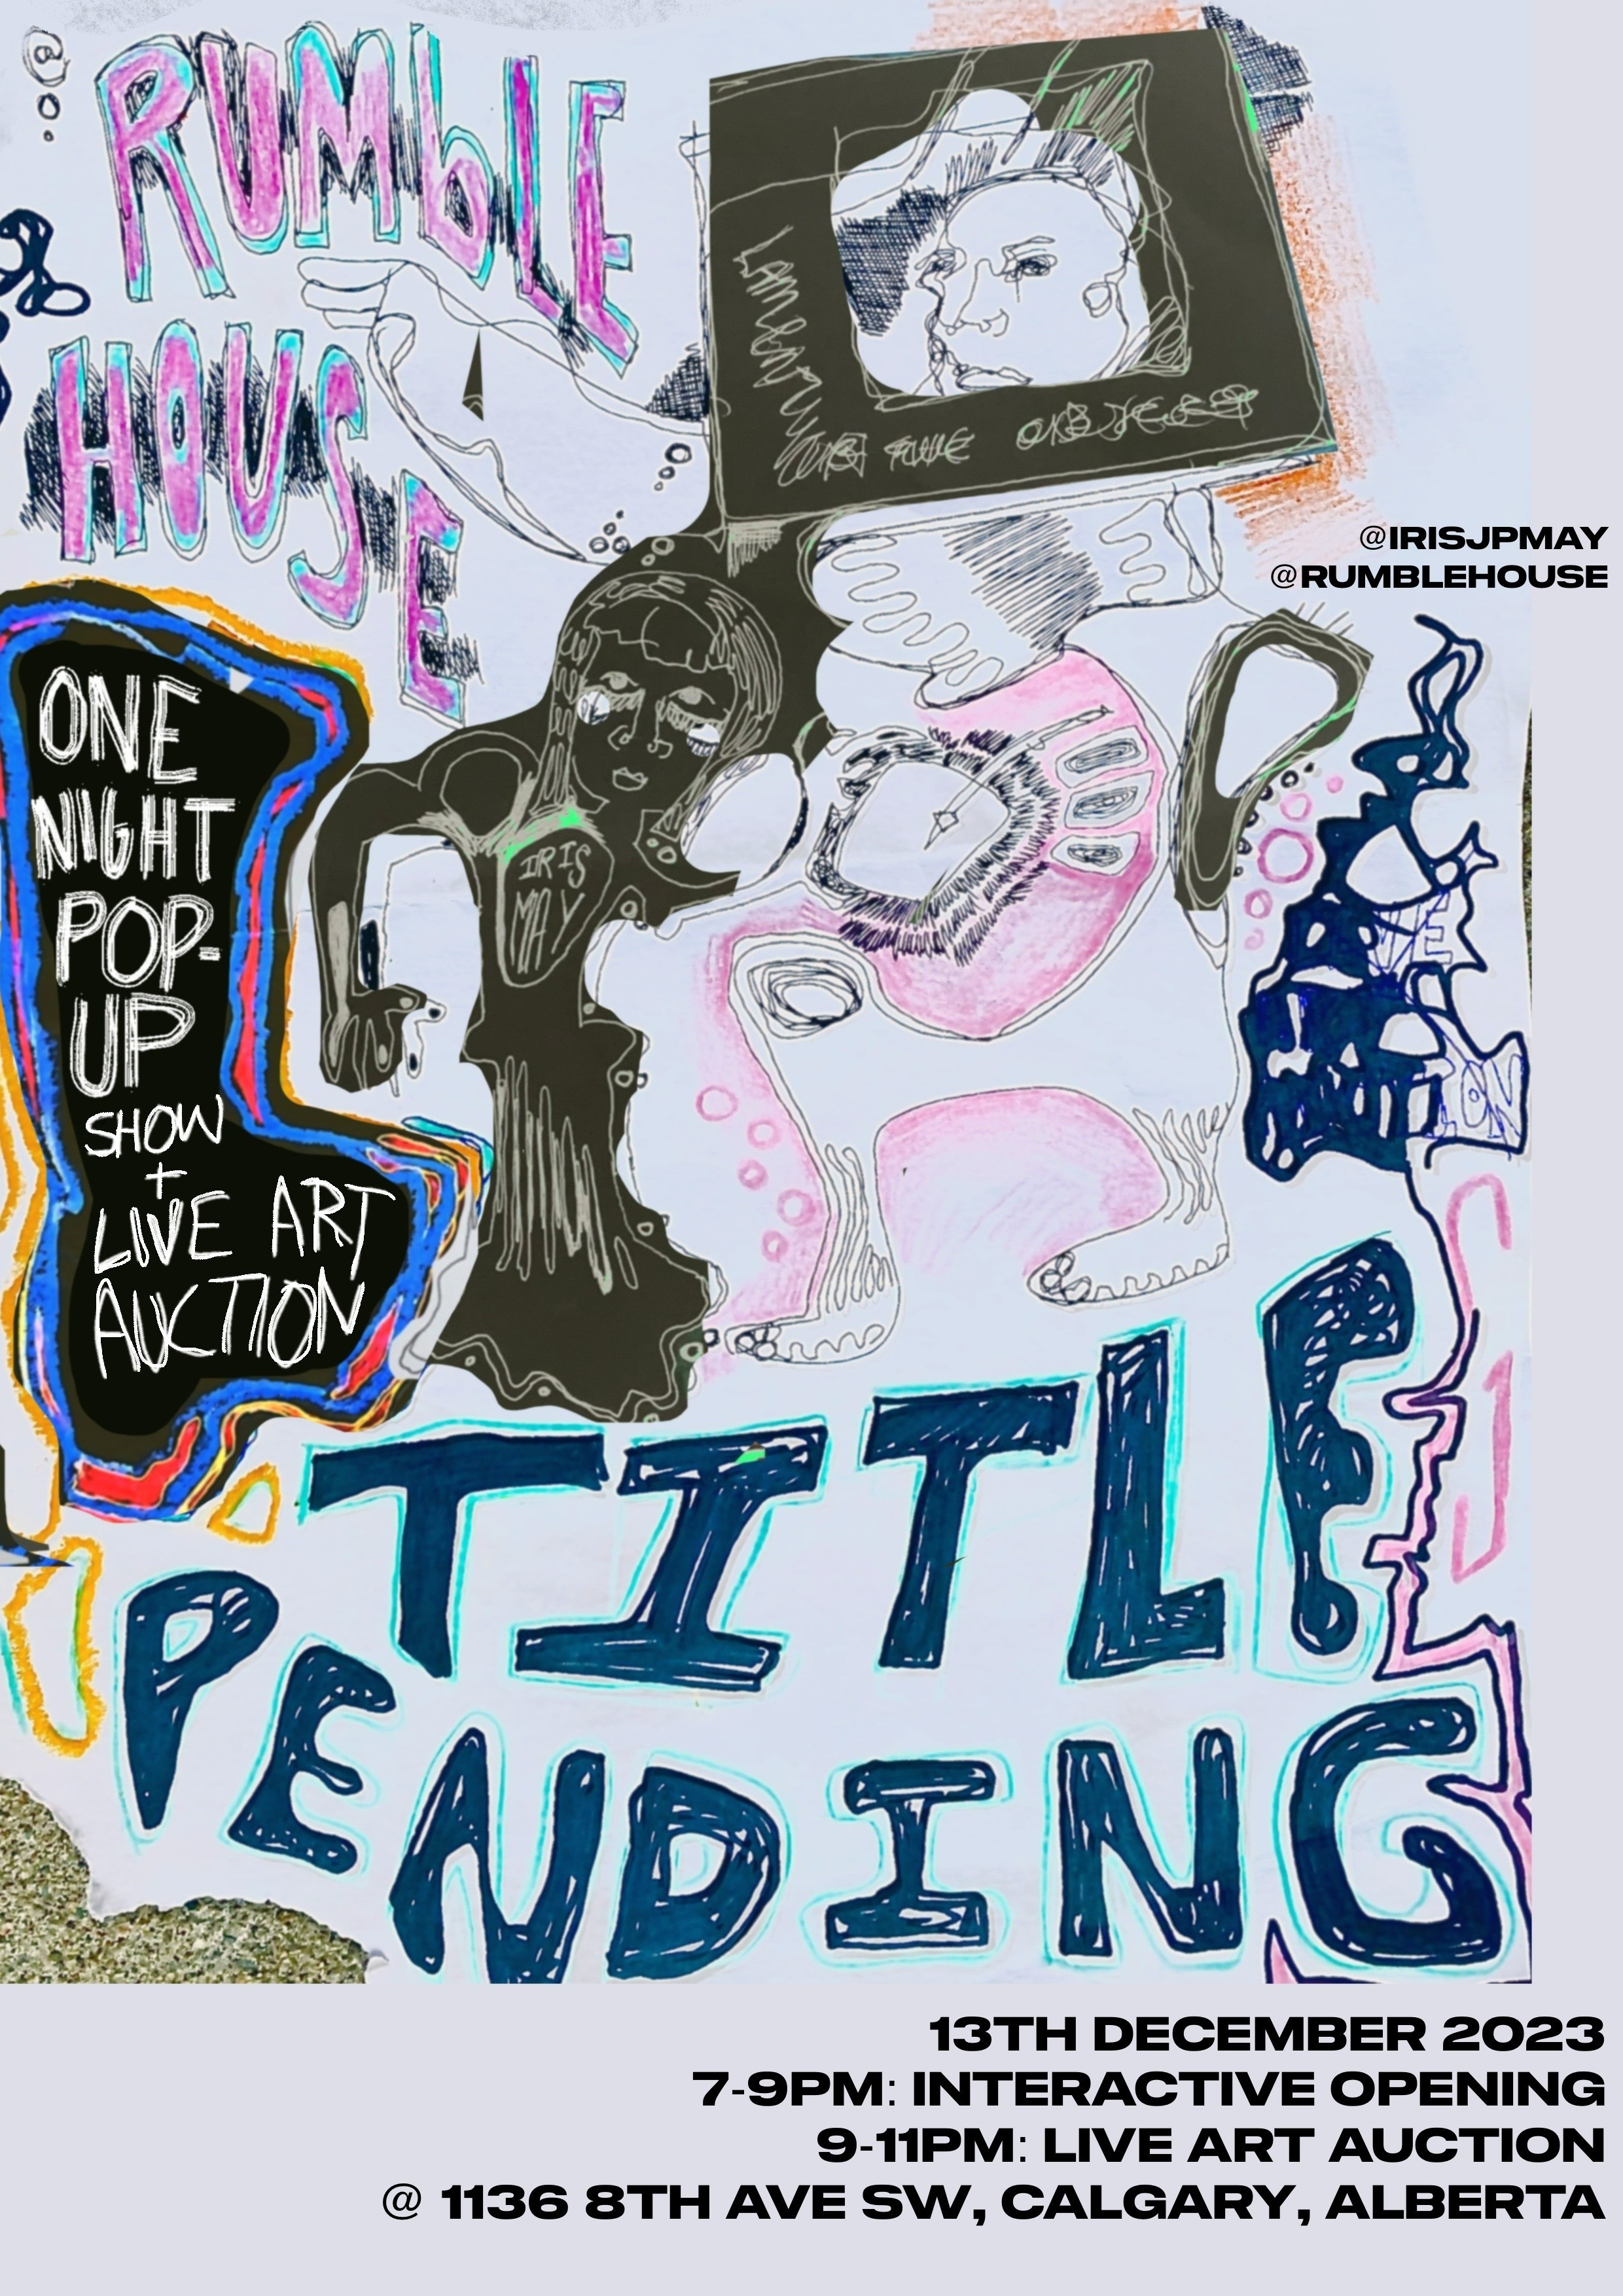 @
RUMBLE
HOUSE
@IRISJPMAY
@RUMBLEHOUSE
ONE
NIGHT
POP-
UP
SHOW
+
LIVE ART
AUCTION
IRIS
MAY
TITLE
PENDING
13TH DECEMBER 2023
7-9PM: INTERACTIVE OPENING
9-11PM: LIVE ART AUCTION
@ 1136 8TH AVE SW, CALGARY, ALBERTA